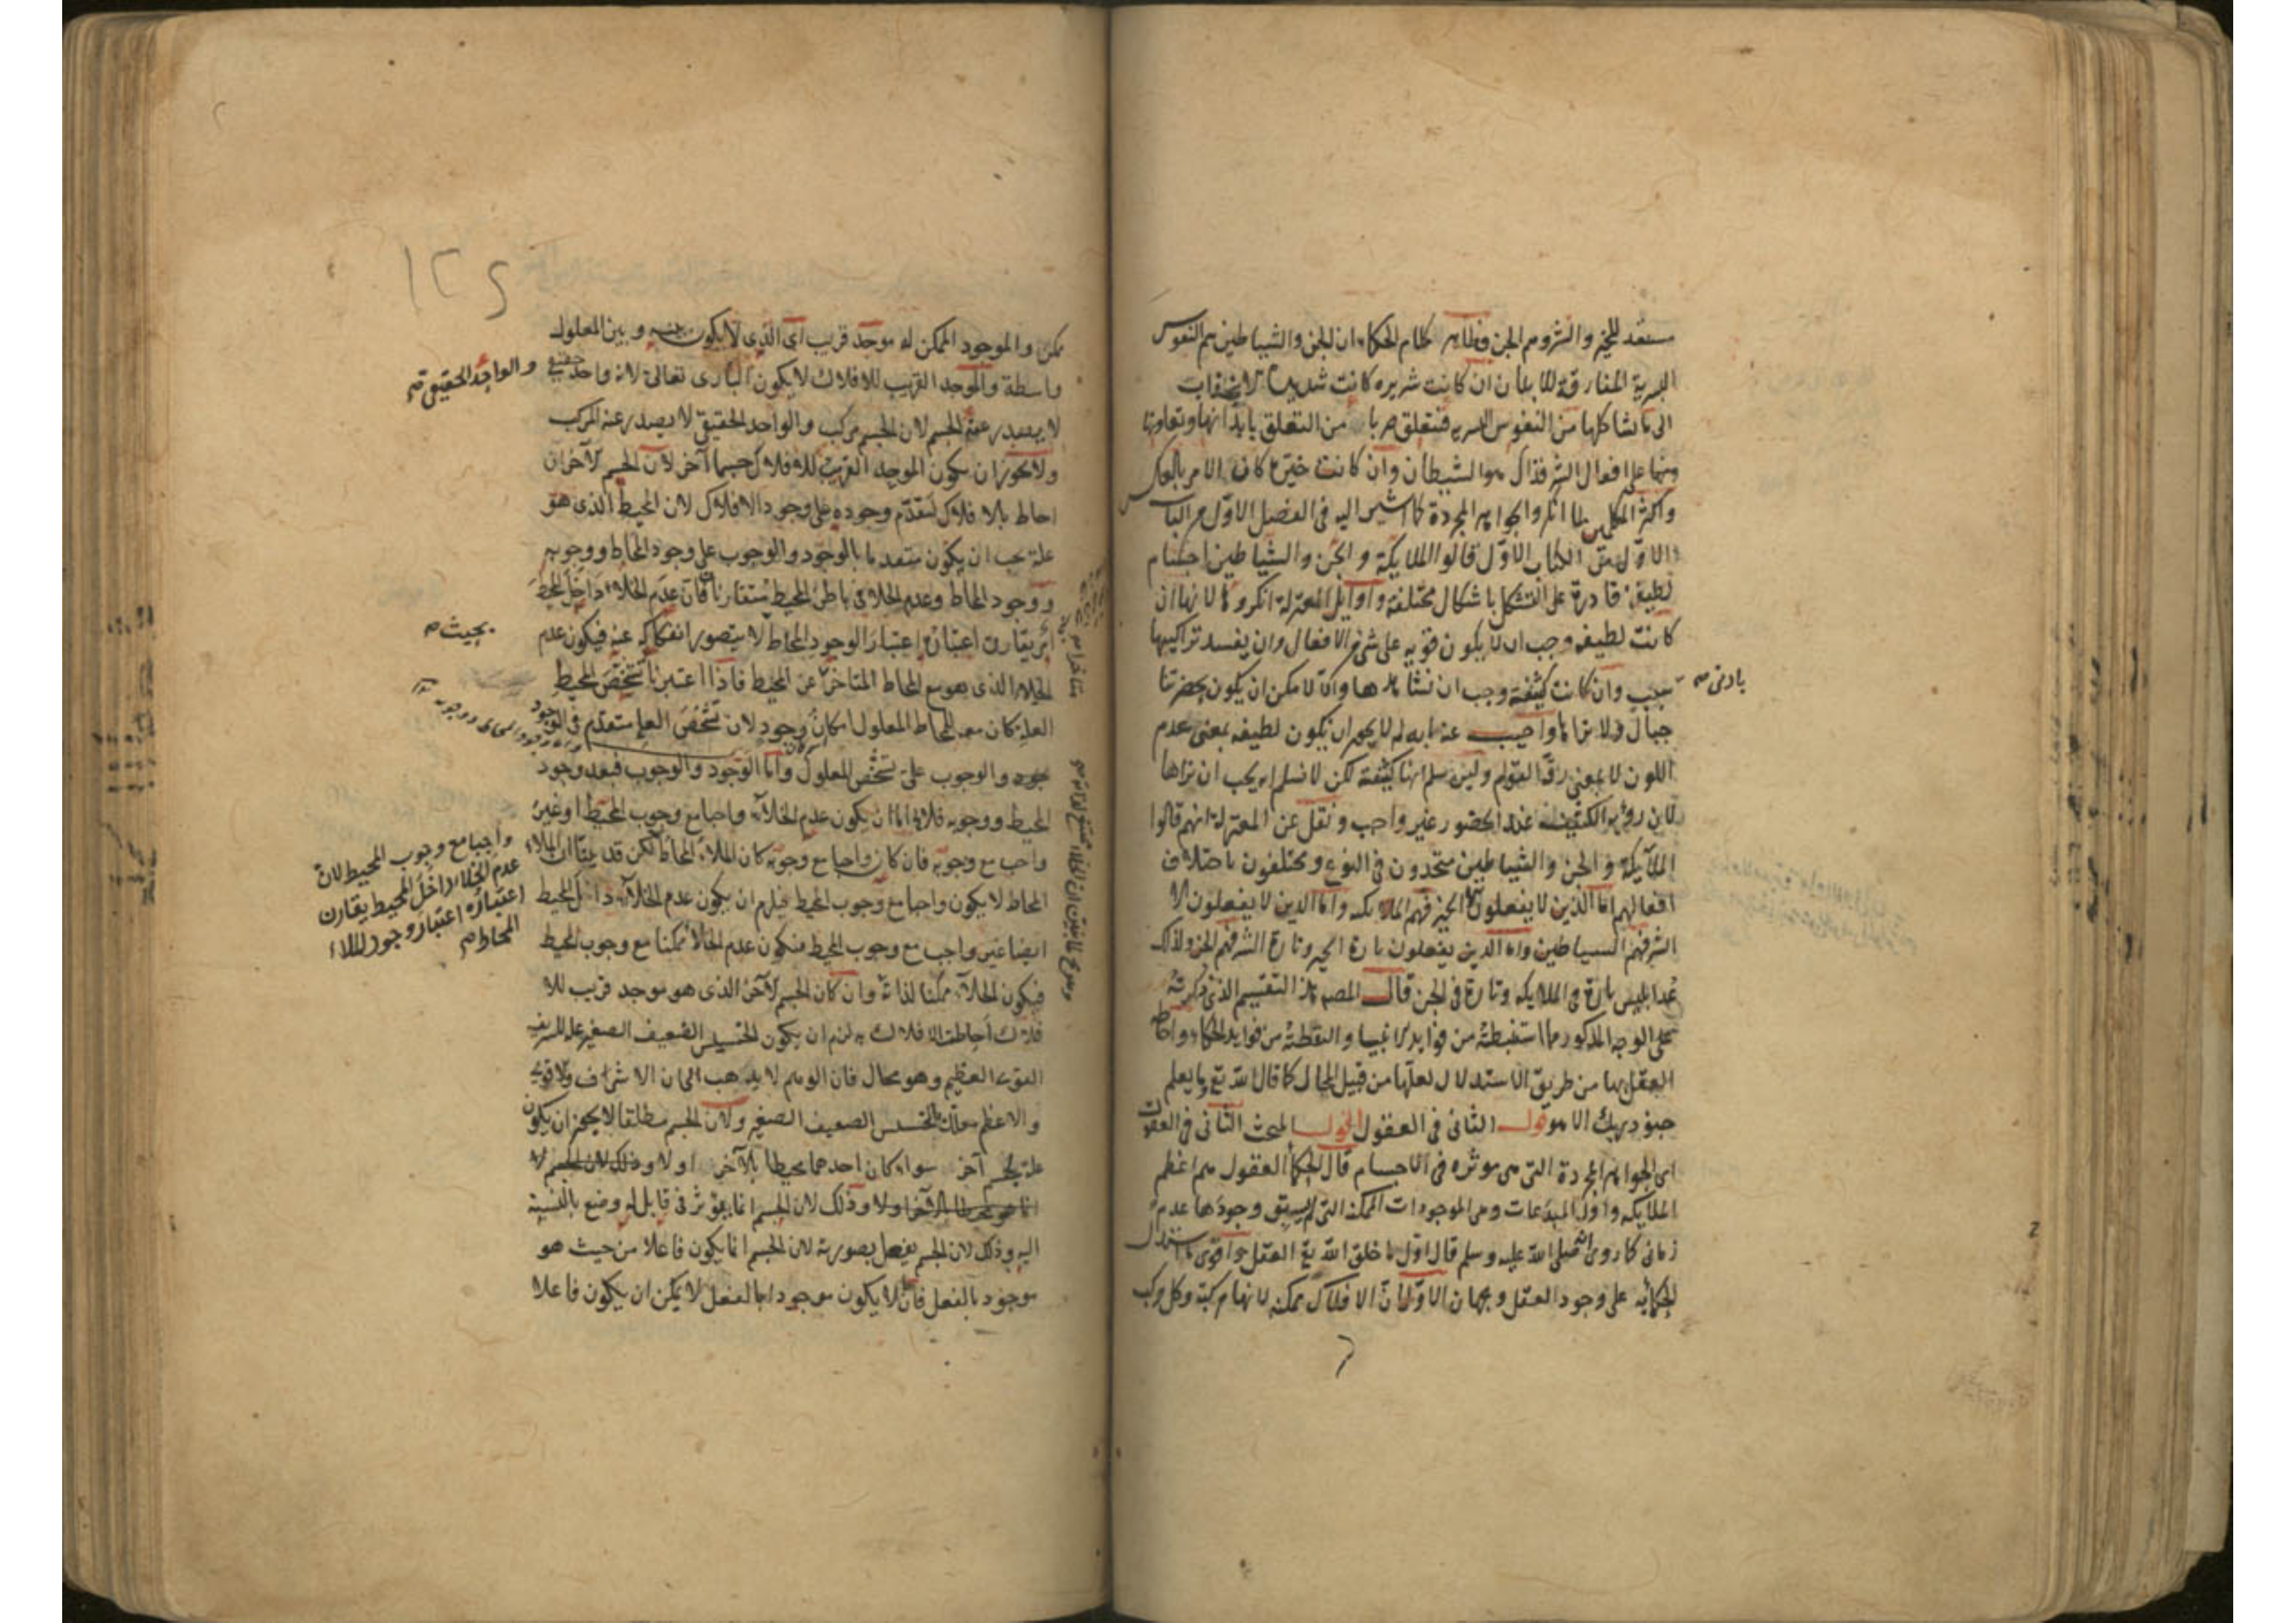 مستعد للخير والشر وهم الجن وظاهر كلام الحكماء ان الجن والشياطين هم النفوس
البشرية المفارقة للابدان ان كانت شريرة كانت شديدة الانجذاب
الى ما يشاكلها من النفوس البشرية فتتعلق ضربا من التعلق بابدانها وتعاونها
على افعال الشر فذاك هو الشيطان وان كانت خيرة كان الامر بالعكس
واكثر المتكلمين لما انكروا الجواهر المجردة كما اشير اليه فى الفصل الاول من الباب
الاول من الكتاب الاول قالوا الملايكة والجن والشياطين اجسام
لطيفة قادرة على التشكل باشكال مختلفة واوايل المعتزلة انكروها لانها ان
كانت لطيفة وجب ان لا يكون قوية على شئ من الافعال وان يفسد تراكيبها
بادنى
سبب وان كانت كثيفة وجب ان نشاهدها والا لامكن ان يكون بحضرتنا
جبال ولا نراها واجيب عنه بانه لم لا يجوز ان يكون لطيفة بمعنى عدم
اللون لا بمعنى رقة القوام ولئن سلم انها كثيفة لكن لا نسلم انه يجب ان نراها
لان رؤية الكثيف عند الحضور غير واجب ونقل عن المعتزلة انهم قالوا
الملايكة والجن والشياطين متحدون فى النوع ومختلفون باختلاف
افعالهم اما الذين لا يفعلون الا الخير فهم الملايكة واما الذين لا يفعلون الا
الشر فهم الشياطين واما الذين يفعلون تارة الخير وتارة الشر فهم الجن ولذلك
عد ابليس تارة فى الملايكة وتارة فى الجن قال المصم هذا التقسيم الذى ذكرته
على الوجه المذكور مما استنبطته من فوايد الانبياء والتقطته من فوايد الحكماء واحاطة
العقل بها من طريق الاستدلال لعلها من قبيل المحال كما قال الله تع وما يعلم
جنود ربك الا هو قول الثانى فى العقول اقول المبحث الثانى فى العقول
اى الجواهر المجردة التى هى موثرة فى الاجسام قال الحكما العقول هم اعظم
الملايكة واول المبدعات وهى الموجودات الممكنة التى لم يسبق وجودها عدم
زمانى كما روى انه صلى الله عليه وسلم قال اول ما خلق الله تع العقل واقوى ما استدل
الحكما به على وجود العقل وجهان الاول ان الافلاك ممكنة لانها مركبة وكل مركب
١٢٤
ممكن والموجود الممكن له موجد قريب اى الذى لا يكون بينه وبين المعلول
واسطة والموجد القريب للافلاك لا يكون البارى تعالى لانه واحد حقيقى
والواحد الحقيقى
لا يصدر عنه الجسم لان الجسم مركب والواحد الحقيقى لا يصدر عنه المركب
ولا يجوز ان يكون الموجد القريب للافلاك جسما آخر لان الجسم الآخر ان
احاط بالافلاك لتقدم وجوده على وجود الافلاك لان المحيط الذى هو
علة يجب ان يكون متقدما بالوجود والوجوب على وجود المحاط ووجوبه
ووجود المحاط وعدم الخلاء فى باطن المحيط متقارنان فان عدم الخلاء داخل المحيط
امر يقارن اعتباره اعتبار الوجود المحاط لا يتصور انفكاكه عنه فيكون عدم
بحيث
الخلاء الذى هو مع المحاط المتاخر عن المحيط فاذا اعتبرنا تشخص المحيط
العلة كان معه للمحاط المعلول امكان وجود لان تشخص العلة متقدم فى الوجود
والوجوب على تشخص المعلول واما الوجود والوجوب فبعد وجود
المحيط ووجوبه فلا اما ان يكون عدم الخلاء واجبا مع وجوب المحيط او غير
واجب مع وجوبه فان كان واجبا مع وجوبه كان الملاء المحاط لكن قد بينا ان الملاء
واجبا مع وجوب المحيط لان
عدم الخلاء داخل المحيط يقارن
اعتباره اعتبار وجود الملاء
المحاط
المحاط لا يكون واجبا مع وجوب المحيط فيلزم ان يكون عدم الخلاء داخل المحيط
ايضا غير واجب مع وجوب المحيط فيكون عدم الخلاء ممكنا مع وجوب المحيط
فيكون الخلاء ممكنا لذاته وان كان الجسم الآخر الذى هو موجد قريب للا
فلاك احاطت الافلاك به لزم ان يكون الخسيس الضعيف الصغير علة للشريف
القوى العظيم وهو محال فان الوهم لا يذهب الى ان الاشرف والاقوى
والاعظم معلل بالخسيس الضعيف الصغير ولان الجسم مطلقا لا يجوز ان يكون
علة لجسم آخر سواء كان احدهما محيطا بالآخر او لا وذلك لان الجسم لا
اولا وذلك لان الجسم انما يؤثر فى قابل له وضع بالنسبة
اليه وذلك لان الجسم يفعل بصورته لان الجسم انما يكون فاعلا من حيث هو
موجود بالفعل فان ما لا يكون موجودا بالفعل لا يمكن ان يكون فاعلا